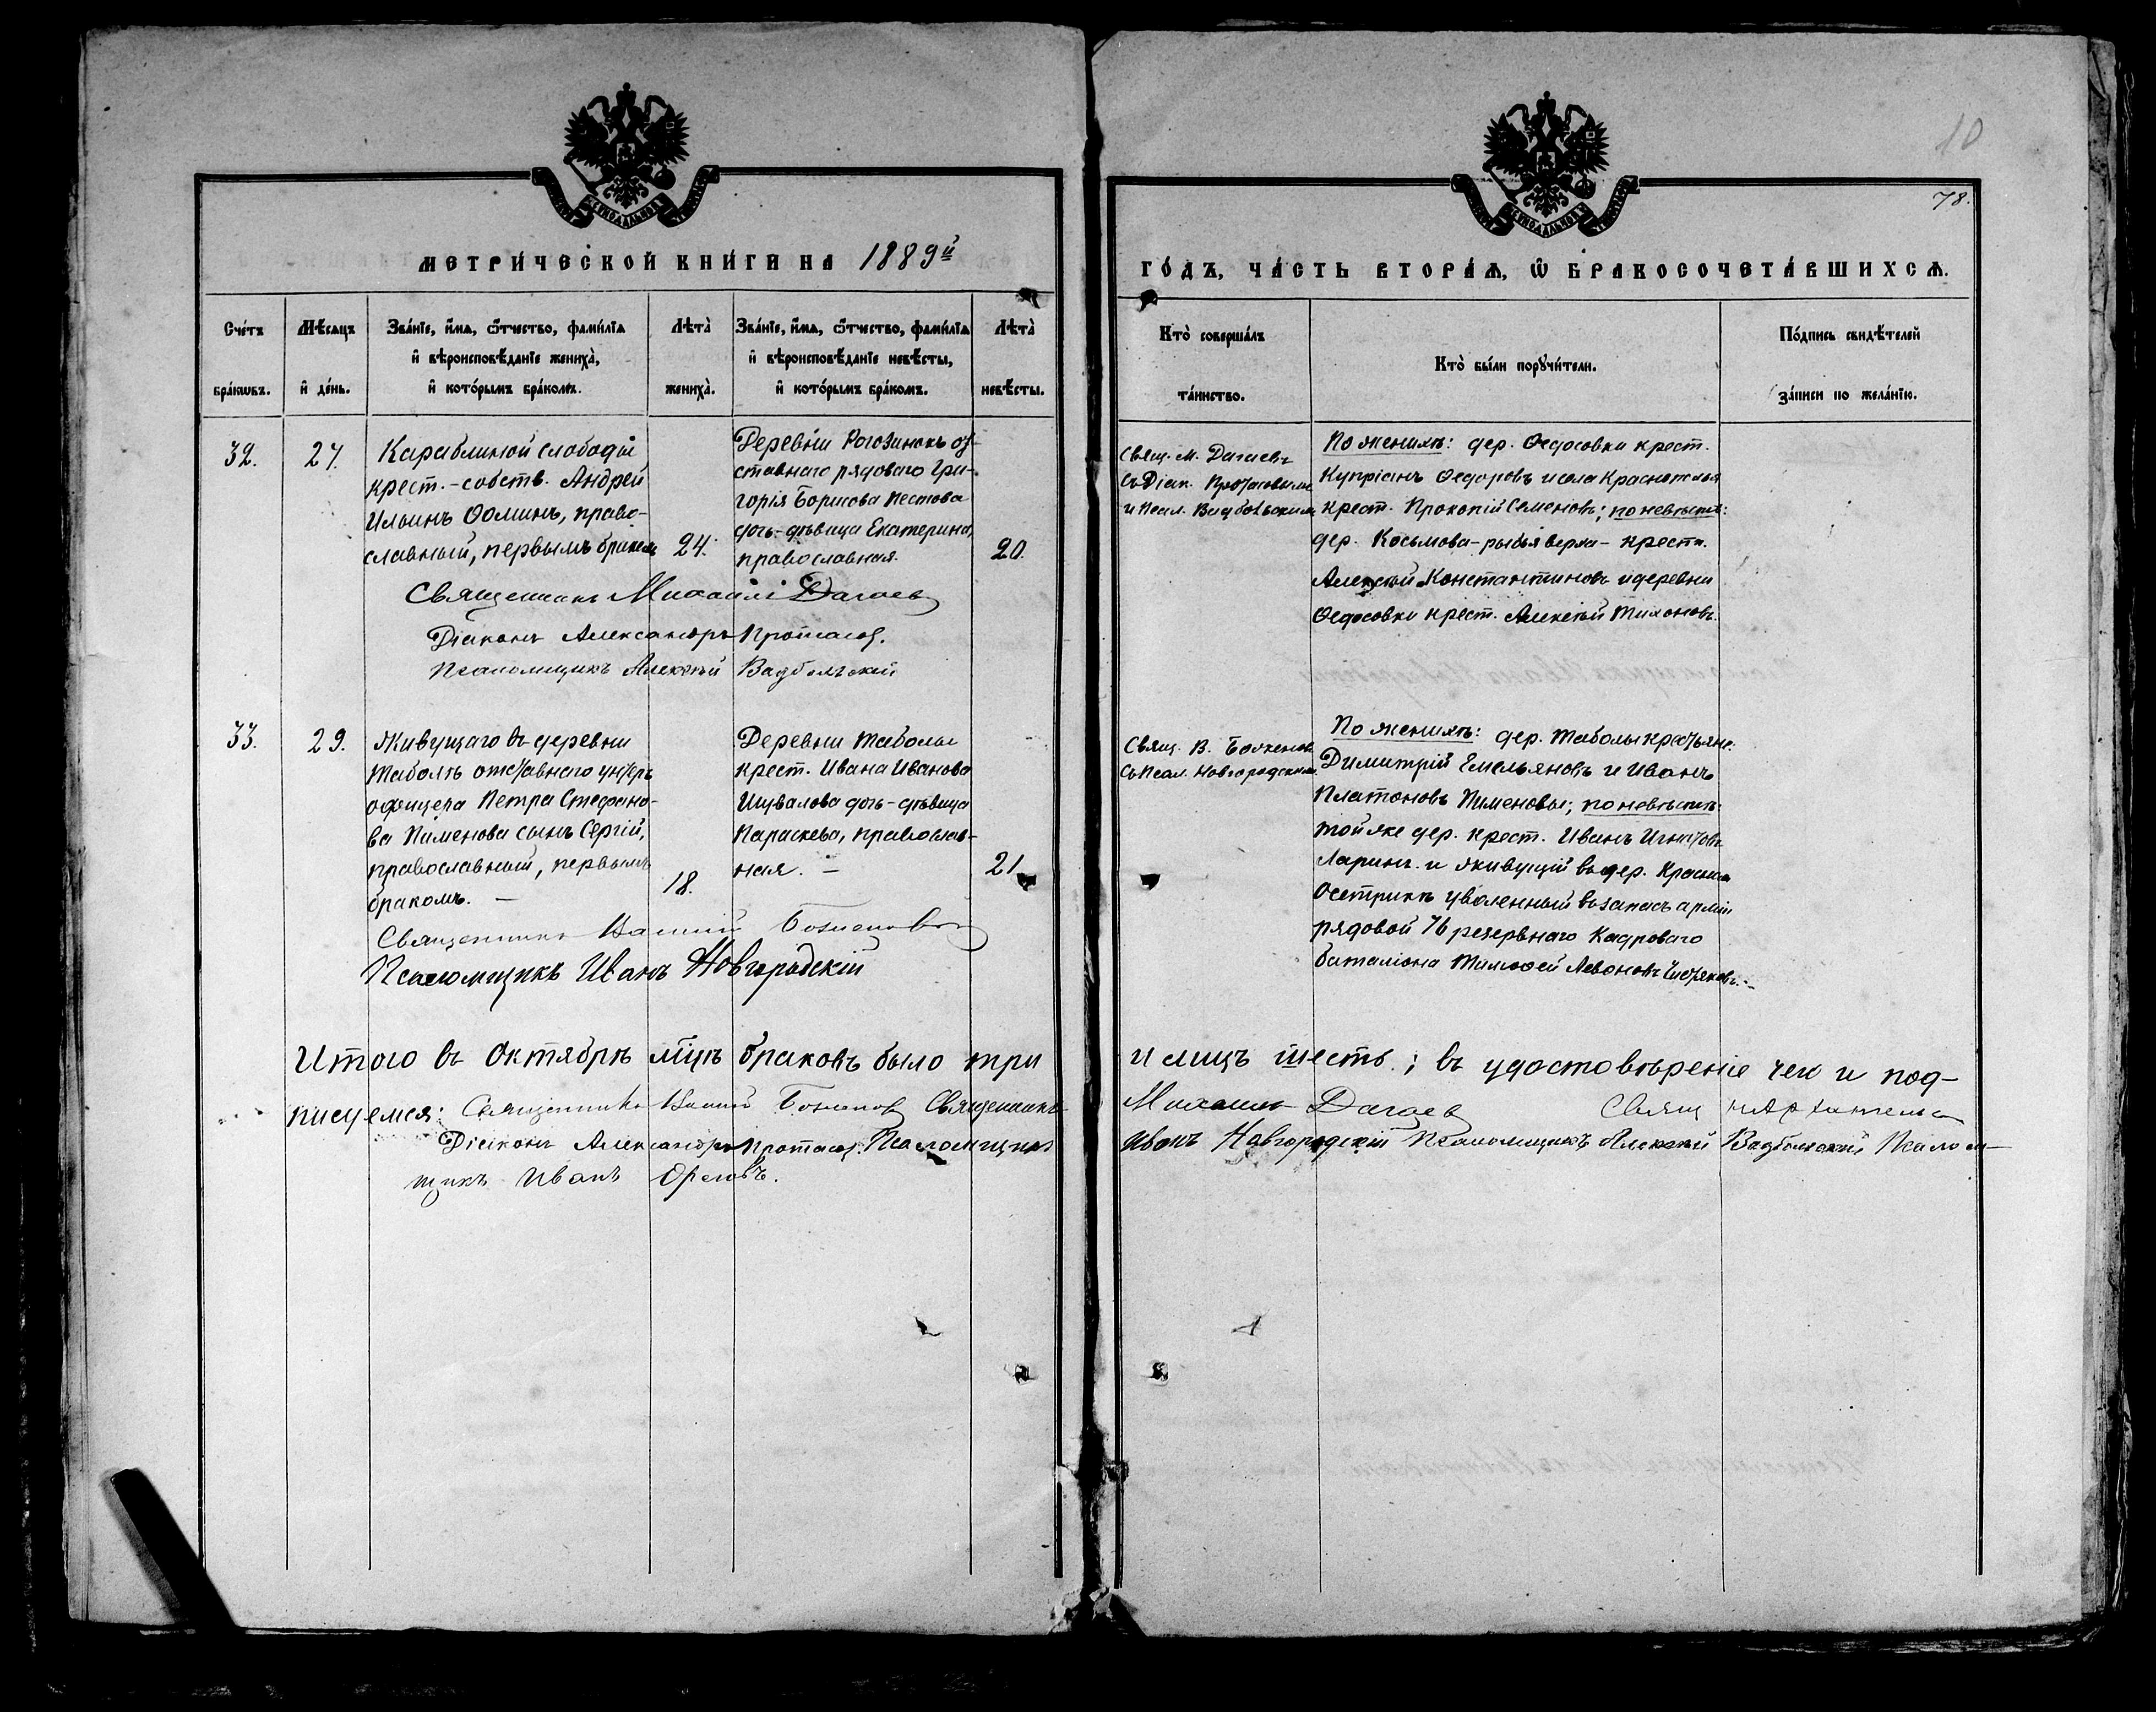 10
78.
МЕТРИ́ЧЕСКОЙ КНИ́ГИ НА 1889й
ГО́ДЪ, ЧА́СТЬ ВТОРА́Ѧ, Ѡ҆ БРАКОСОЧЕТА́ВШИХСѦ.
Сче́тъ бра́кѡвъ.
Мѣ́сѧцъ и҆ де́нь.
Зва́нїе, и҆́мѧ, ѻ҆́тчество, фами́лїѧ
и҆ вѣроисповѣ́данїе жениха̀,
и҆ кото́рымъ бра́комъ.
Лѣта̀ жениха̀.
Зва́нїе, и҆́мѧ, ѻ҆́тчество, фами́лїѧ
и҆ вѣроисповѣ́данїе невѣ́сты,
и҆ кото́рымъ бра́комъ.
Лѣта̀ невѣ́сты.
Кто̀ соверша́лъ та́инство.
Кто̀ бы́ли порꙋчи́тели.
По́дпись свидѣ́телей
за́писи по жела́нїю.
32.
27.
Караблиной слободы
крест.-собств. Андрей
Ильинъ Ѳоминъ, право-
славный, первымъ бракомъ
24.
Деревни Рогозинокъ от-
ставнаго рядоваго Гри-
горія Борисова Пестова
дочь-дѣвица Екатерина,
православная.
20.
Свящ. М. Дагаевъ
съ Діак. Протасовымъ
и Псал. Вадбольскимъ
По женихѣ: дер. Ѳедосовки крест.
Купріанъ Ѳедоровъ и села
крест. Прокопій Семеновъ; по невѣстѣ:
дер. Косьмова-рыбья верха- крестн.
Алексѣй Константиновъ и деревни
Ѳедосовки крест. Алексѣй Тихоновъ.
Священникъ Михаилъ Дагаевъ
Діаконъ Александръ Протасов.
Псаломщикъ Алексѣй Вадбольскій
33.
29.
Живущаго въ деревни
Таболѣ отставнаго унтеръ
офицера Петра Стефано-
ва Пименова сынъ Сергій,
православный, первымъ
бракомъ. —
18.
Деревни Таболы
крест. Ивана Иванова
Шувалова дочь-дѣвица
Параскева, православ-
ная. —
21.
Свящ. В. Боженовъ
съ Псал. Новгородскимъ.
По женихѣ: дер. Таболы крестьяне:
Димитрій Емельяновъ и Иванъ
Платоновъ Пименовы; по невѣстѣ:
той же дер. крест. Иванъ Игнатовъ
Ларинъ и живущій въ дер.
уволенный въ запасъ арміи
рядовой 76 резервнаго Кадроваго
баталіона Тимоѳей Левоновъ Чистяковъ. —
Священникъ Боженовъ
Псаломщикъ Иванъ Новгородскій
Итого въ Октябрѣ мцѣ браковъ было три и лицъ шесть.; въ удостовѣреніе чего и под-
писуемся: Священникъ Боженовъ Священникъ Михаилъ Дагаевъ Свящ
Діаконъ Александръ Протасов. Псаломщикъ Иванъ Новгородскій Псаломщикъ Алексѣй Вадбольскій Псалом-
щикъ Иванъ Орловъ.